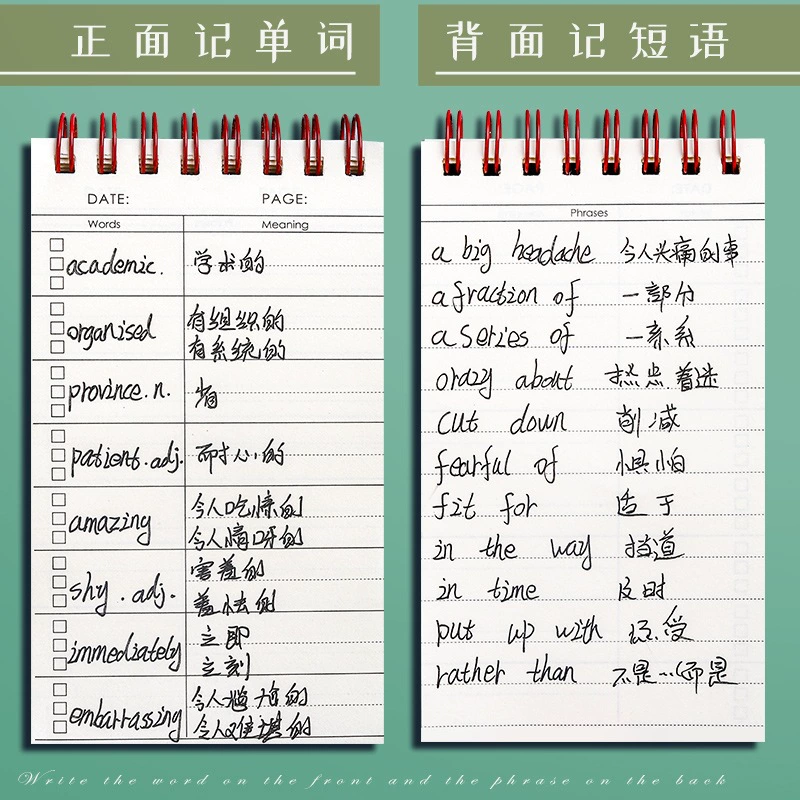 正面记单词
DATE: PAGE:
Words Meaning
academic. 学术的
organised 有组织的
有系统的
province.n. 省
patient.adj. 耐心的
amazing 令人吃惊的
令人惰呀的
shy.adj. 害羞的
羞怯的
immediately 立即
立刻
embarrassing 令人尴尬的
令人难堪的
背面记短语
Phrases
a big headache 令人头痛的事
a fraction of 一部分
a series of 一系系
crazy about 热点着迷
cut down 削减
fearful of 惧怕
fit for 适于
in the way 挡道
in time 及时
put up with 忍受
rather than 不是…而是
Write the word on the front and the phrase on the back